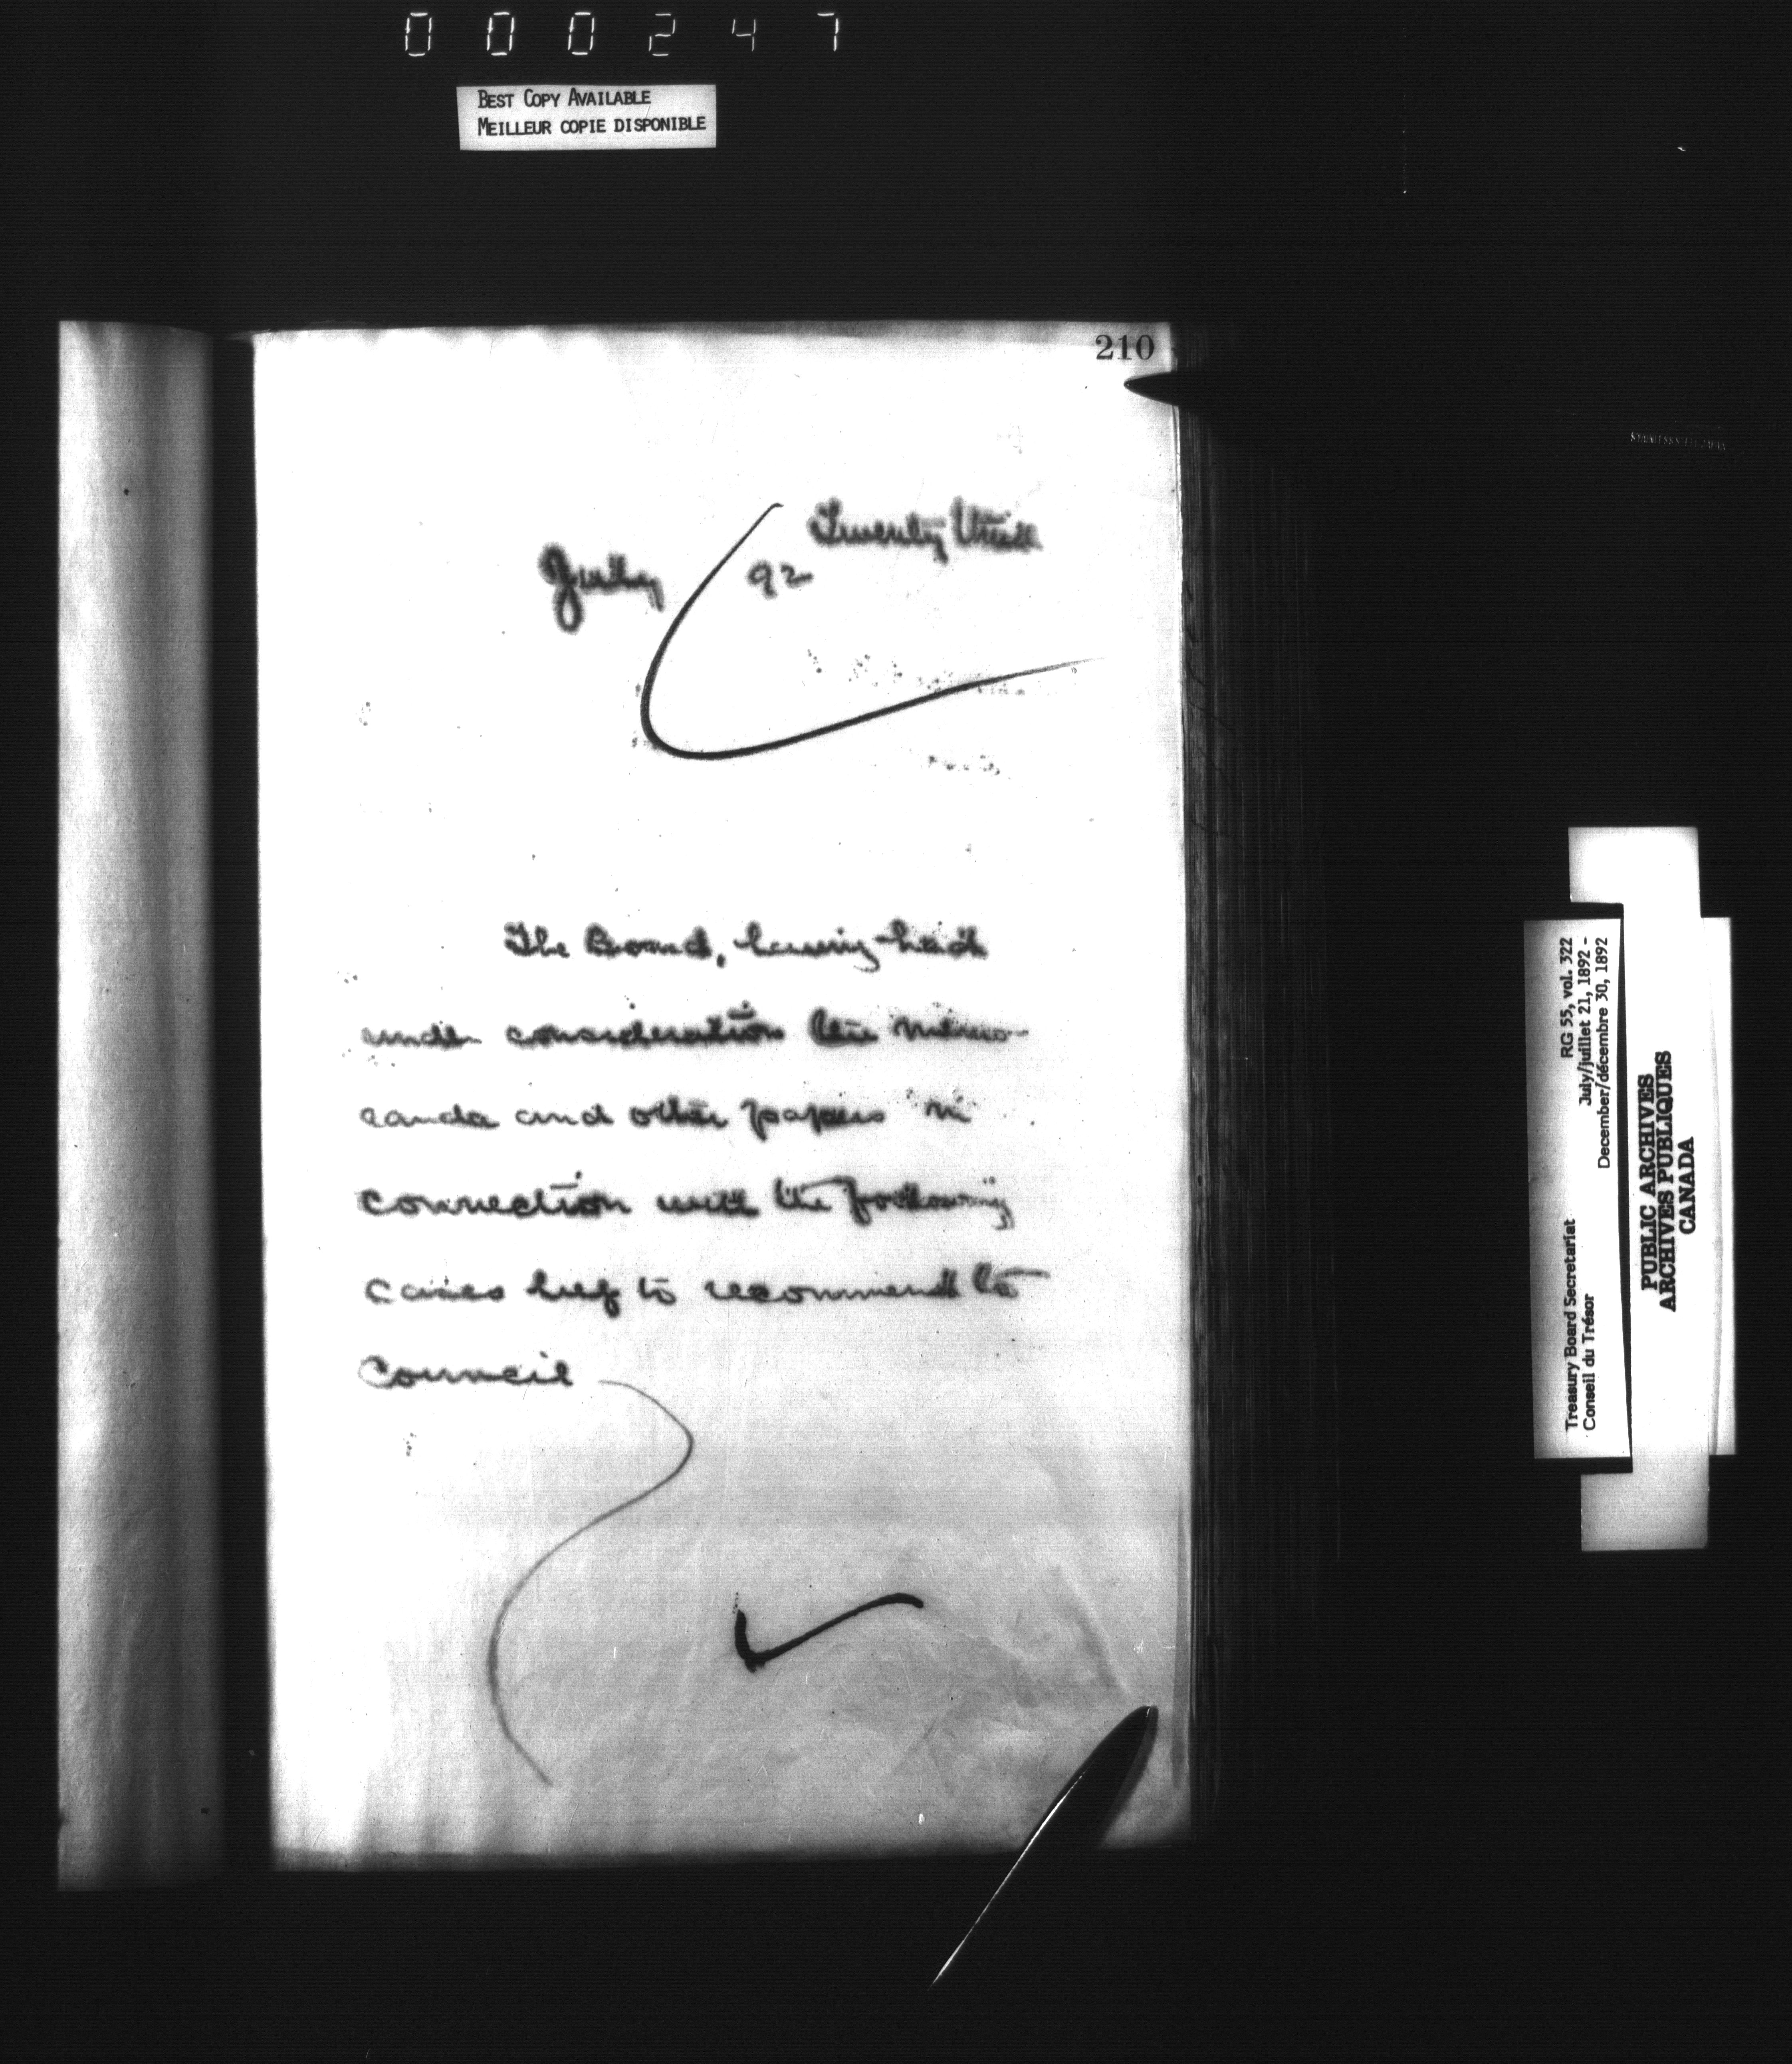 000247
BEST COPY AVAILABLE
MEILLEUR COPIE DISPONIBLE
210
Twenty third
July 92
The Board, having had
under consideration the memo-
randa and other papers in
connection with the following
cases beg to recommend to
Council
RG 55, vol. 322
July/juillet 21, 1892 -
December/décembre 30, 1892
Treasury Board Secretariat
Conseil du Trésor
PUBLIC ARCHIVES
ARCHIVES PUBLIQUES
CANADA